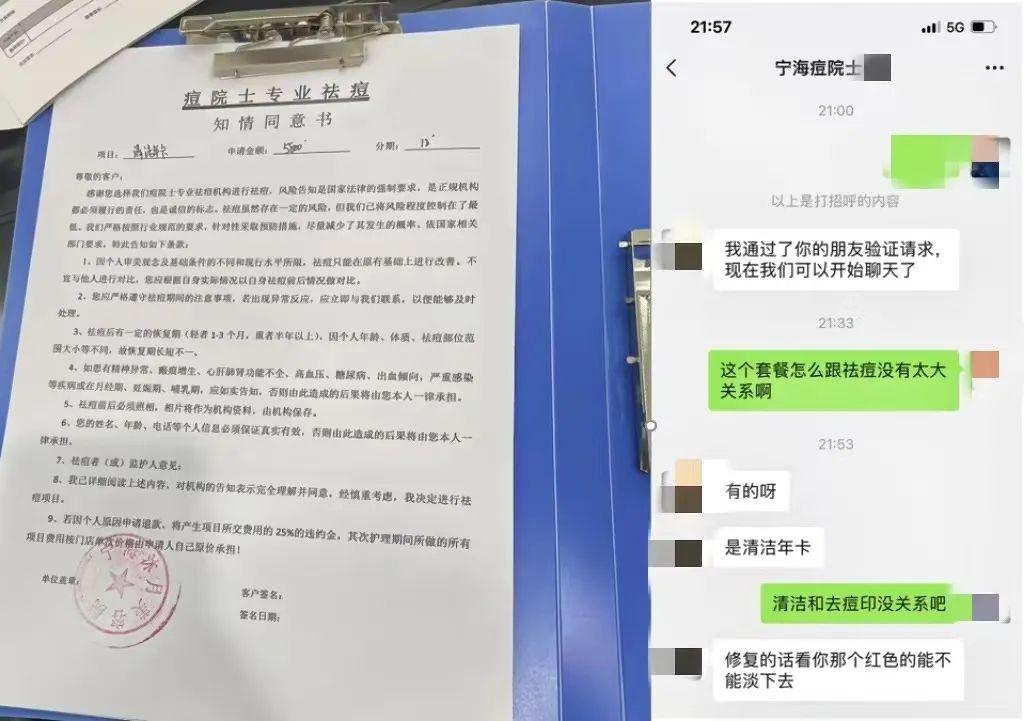 痘院士专业祛痘
知情同意书
项目: 清洁卡 申请金额: 5800 分期: 12
尊敬的客户:
感谢您选择我们痘院士专业祛痘机构进行祛痘，风险告知是国家法律的强制要求，是正规机构
都必须履行的责任，也是诚信的标志。祛痘虽然存在一定的风险，但我们已将风险程度控制在了最
低。我们严格按照行业规范的要求，针对性采取预防措施，尽量减少了其发生的概率。依国家相关
部门要求，特此告知如下条款:
1、因个人审美观念及基础条件的不同和现行水平所限，祛痘只能在原有基础上进行改善。不
宜与他人进行对比。您应根据自身实际情况以自身祛痘前后情况做对比。
2、您应严格遵守祛痘期间的注意事项，若出现异常反应，应立即与我们联系，以便能够及时
处理。
3、祛痘后有一定的恢复期（轻者1-3个月，重者半年以上），因个人年龄、体质、祛痘部位范
围大小等不同，故恢复期长短不一、
4、如患有精神异常、瘢痕增生、心肝肺肾功能不全、高血压、糖尿病、出血倾向，严重感染
等疾病或在月经期、妊娠期、哺乳期，应如实告知，否则由此造成的后果将由您本人一律承担。
5、祛痘前后必须照相，相片将作为机构资料，由机构保存。
6、您的姓名、年龄、电话等个人信息必须保证真实有效，否则由此造成的后果将由您本人一
律承担。
7、祛痘者（或）监护人意见:
8、我已详细阅读上述内容，对机构的告知表示完全理解并同意，经慎重考虑，我决定进行祛
痘项目。
9、若因个人原因申请退款、将产生项目所交费用的25%的违约金，其次护理期间所做的所有
项目费用按门店单次价格由申请人自己原价承担！
单位盖章:
客户签名:
签名日期:
21:57
5G
宁海痘院士
21:00
以上是打招呼的内容
我通过了你的朋友验证请求，
现在我们可以开始聊天了
21:33
这个套餐怎么跟祛痘没有太大
关系啊
21:53
有的呀
是清洁年卡
清洁和去痘印没关系吧
修复的话看你那个红色的能不
能淡下去